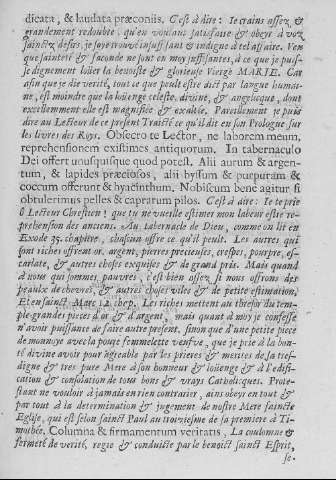 dicata, & laudata præconiis. C'est à dire : Ie crains assez, &
grandement redoubte, qu'en voulant satisfaire & obeyr à voz
saincts desirs, je soye trouvé insuffisant & indigne à tel affaire. Ven
que sainteté & faconde ne sont en moy suffisantes, à ce que je puis-
se dignement loüer la benoiste & glorieuse Vierge MARIE. Car
afin que je die verité, tout ce que peult estre dict par langue humai-
ne, est moindre que la loüenge celeste, divine, & angelique, dont
excellemment elle est magnifiée & exaltée. Pareillement je puis
dire au Lecteur de ce present Traicté ce qu'il dit en son Prologue sur
les livres des Roys. Obsecro te Lector, ne laborem meum,
reprehensionem existimes antiquorum. In tabernaculo
Dei offert unusquisque quod potest. Alii aurum & argen-
tum, & lapides præciosos, alii byssum & purpuram &
coccum offerunt & hyacinthum. Nobiscum bene agitur si
obtulerimus pelles & caprarum pilos. C'est à dire : Ie te prie
ô Lecteur Chrestien ! que tu ne vueille estimer mon labeur estre re-
prehension des anciens. Au tabernacle de Dieu, comme on lit en
Exode 35. chapitre, chascun offre ce qu'il peult. Les autres qui
sont riches offrent or, argent, pierres precieuses, crespes, pourpre, es-
carlate, & autres choses exquises & de grand pris. Mais quand
à nous qui sommes pauvres, c'est bien assez, si nous offrons des
peaulx de chevres, & autres choses viles & de petite estimation,
Et en sainct Marc 12. chap. Les riches mettent au thresor du tem-
ple grandes pieces d'or & d'argent, mais quant à moy je confesse
n'avoir puissance de faire autre present, sinon que d'une petite piece
de monnoye avec la povre femmelette veufve, que je prie à la bon-
té divine avoir pour agreable par les prieres & merites de sa tres-
digne & tres pure Mere à son honneur & loüenge & à l'edifi-
cation & consolation de tous bons & vrays Catholicques. Prote-
stant ne vouloir à jamais en rien contrarier, ains obeyr en tout &
par tout à la determination & jugement de nostre Mere saincte
Eglise, qui est selon sainct Paul au troiziesme de la premiere à Ti-
mothée, Columna & firmamentum veritatis, La coulomne &
fermeté de verité, regie & conduicte par le benoict sainct Esprit,
se